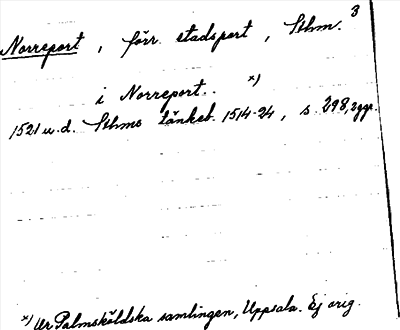 3
Norreport, förr. stadsport, Sthm.
i Norreport.. x)
1521 u.d. Sthms tänkeb. 1514-24, s. 298, 2 ggr.
x) Ur Palmsköldska samlingen, Uppsala. Ej orig.